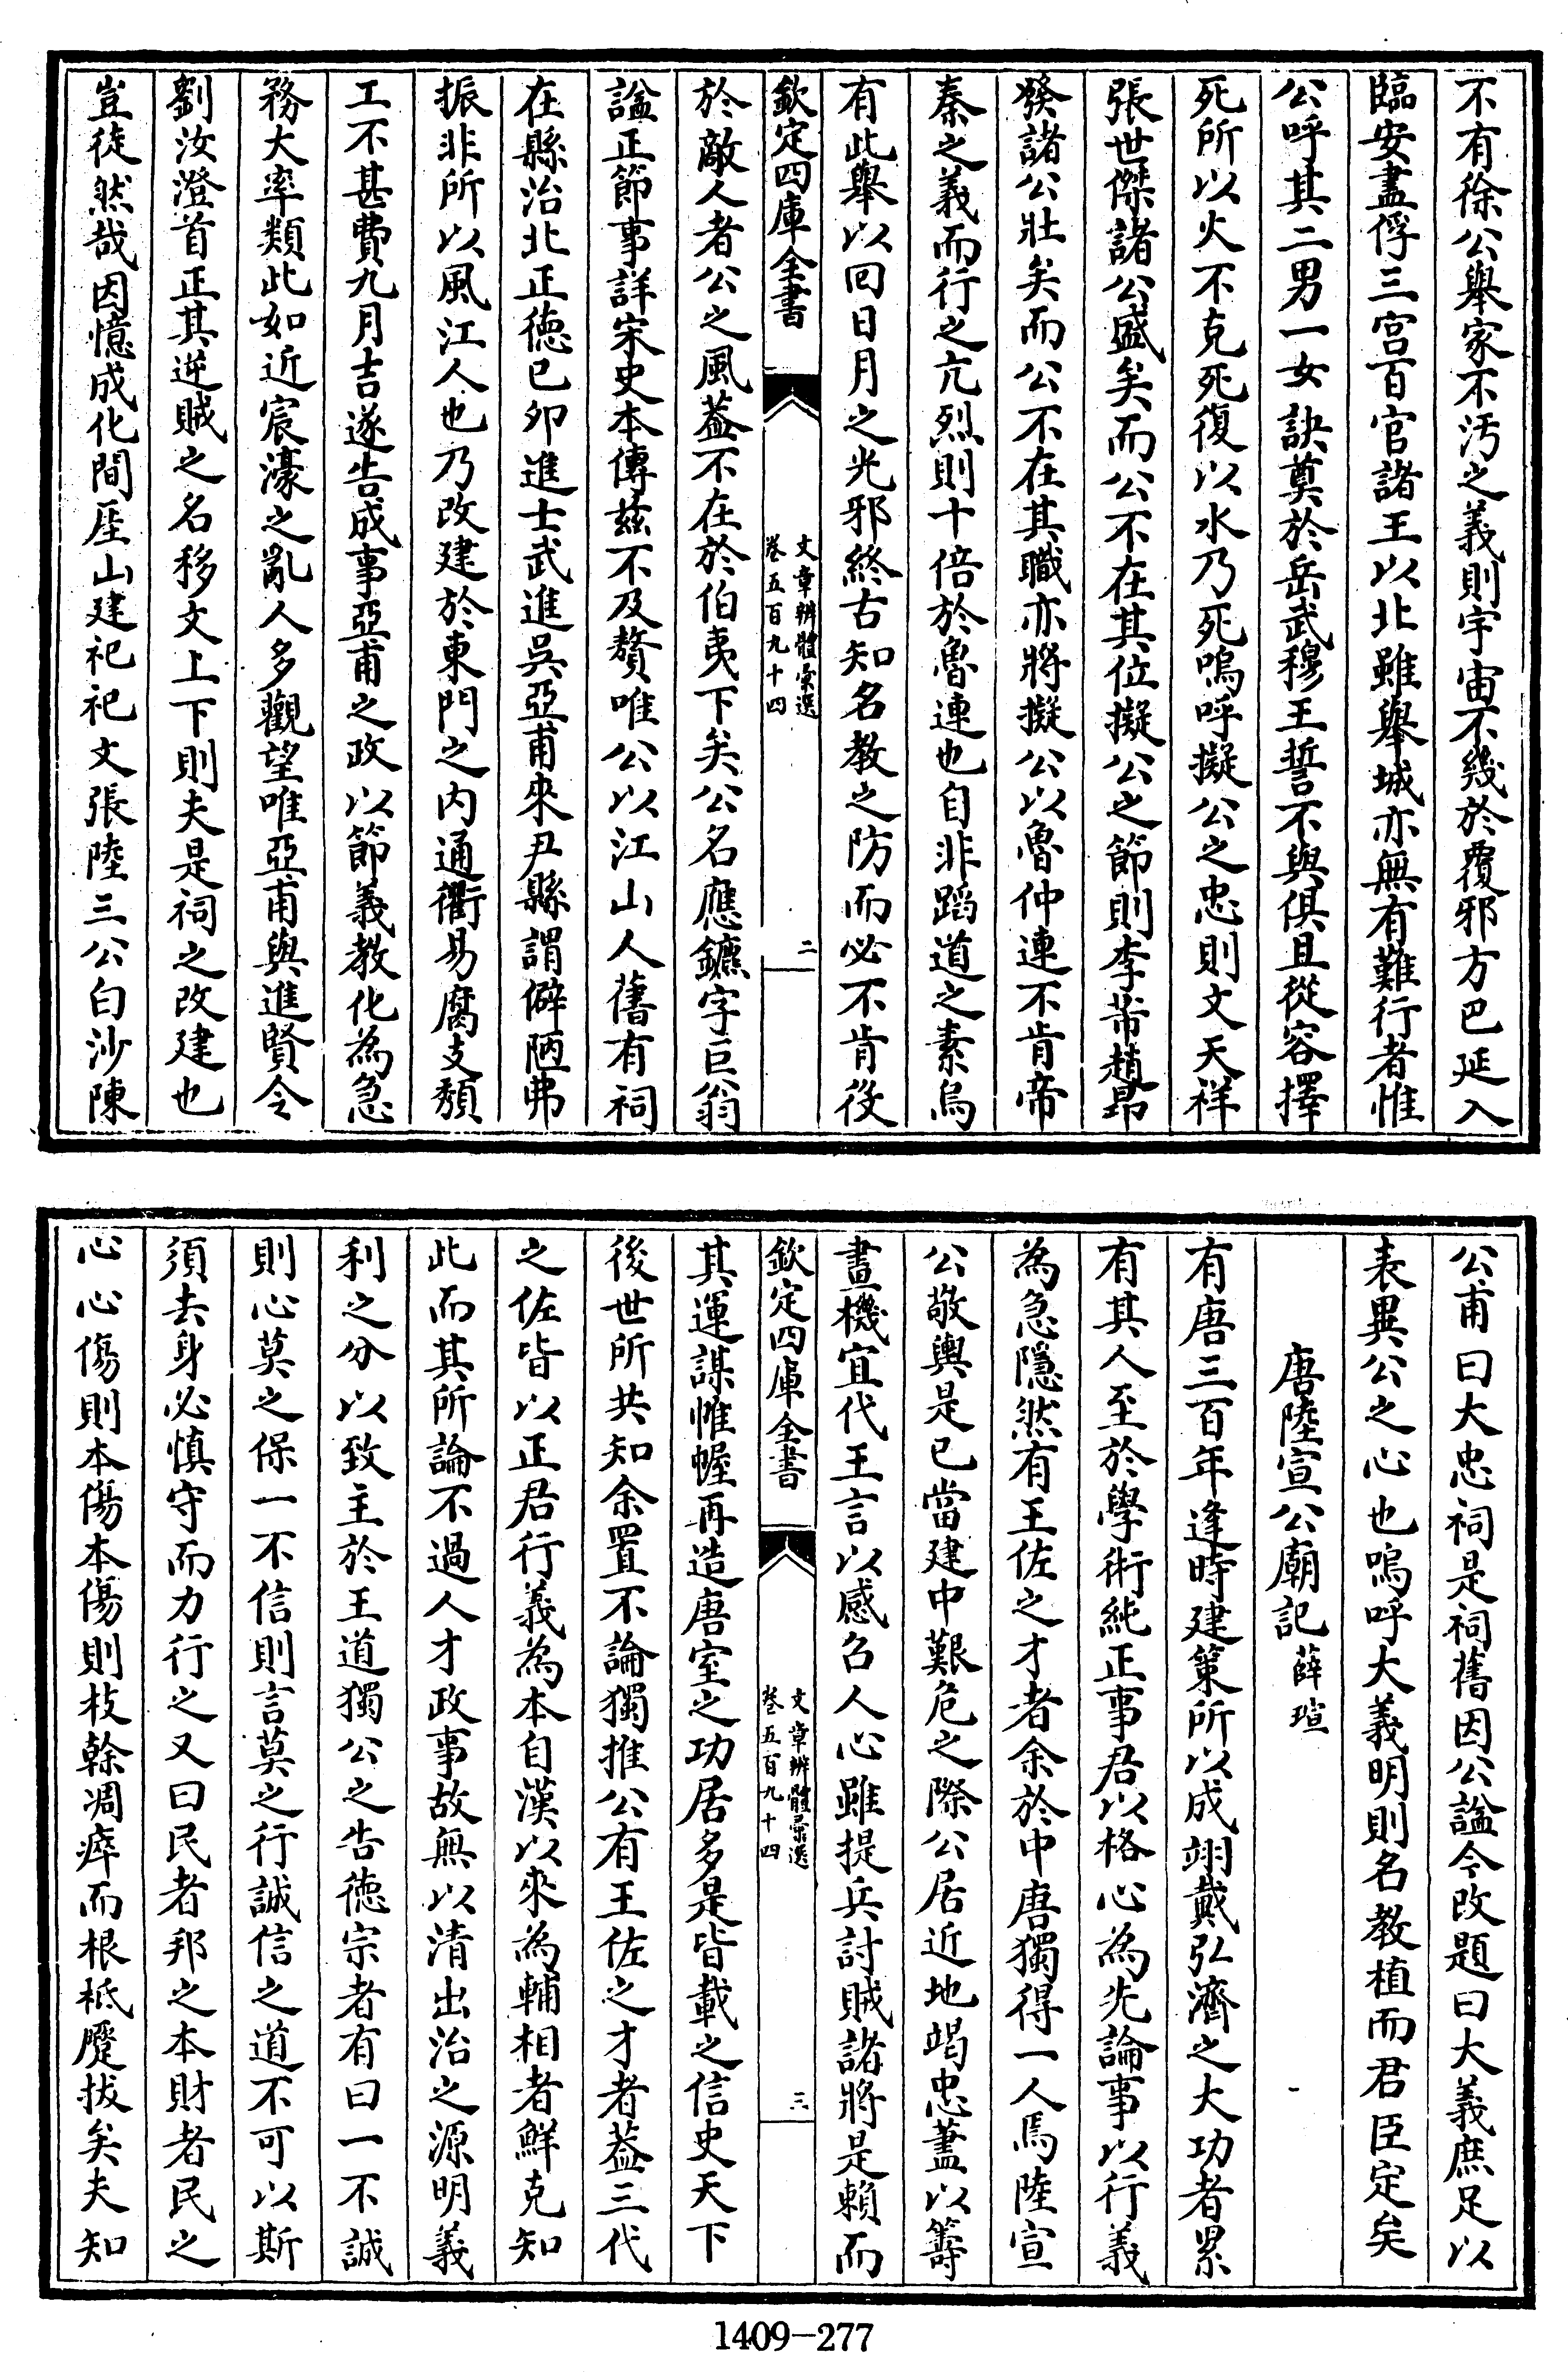 不有徐公舉家不汚之義則宇宙不幾於覆邪方巴延入
臨安盡俘三宮百官諸王以北雖舉城亦無有難行者惟
公呼其二男一女訣奠於岳武穆王誓不與俱且從容擇
死所以火不克死復以水乃死嗚呼擬公之忠則文天祥
張世傑諸公盛矣而公不在其位擬公之節則李芾趙昂
發諸公壯矣而公不在其職亦將擬公以魯仲連不肯帝
秦之義而行之亢烈則十倍於魯連也自非蹈道之素烏
有此舉以回日月之光邪終古知名教之防而必不肯役
欽定四庫全書
文章辨體彙選
卷五百九十四
二
於敵人者公之風葢不在於伯夷下矣公名應鑣字巨翁
諡正節事詳宋史本傳茲不及贅唯公以江山人舊有祠
在縣治北正徳已夘進士武進吳亞甫來尹縣謂僻陋弗
振非所以風江人也乃改建於東門之内通衢易腐支頽
工不甚費九月吉遂告成事亞甫之政以節義教化為急
務大率類此如近宸濠之亂人多觀望唯亞甫與進賢令
劉汝澄首正其逆賊之名移文上下則夫是祠之改建也
豈徒然哉因憶成化間厓山建祀祀文張陸三公白沙陳
公甫曰大忠祠是祠舊因公諡今改題曰大義庶足以
表異公之心也嗚呼大義明則名教植而君臣定矣
唐陸宣公廟記 薛瑄
有唐三百年逢時建策所以成翊戴弘濟之大功者累
有其人至於學術純正事君以格心為先論事以行義
為急隱然有王佐之才者余於中唐獨得一人焉陸宣
公敬輿是已當建中艱危之際公居近地竭忠藎以籌
畫機宜代王言以感召人心雖提兵討賊諸將是賴而
欽定四庫全書
文章辨體彙選
卷五百九十四
三
其運謀帷幄再造唐室之功居多是皆載之信史天下
後世所共知余置不論獨推公有王佐之才者葢三代
之佐皆以正君行義為本自漢以來為輔相者鮮克知
此而其所論不過人才政事故無以清出治之源明義
利之分以致主於王道獨公之告徳宗者有曰一不誠
則心莫之保一不信則言莫之行誠信之道不可以斯
須去身必慎守而力行之又曰民者邦之本財者民之
心心傷則本傷本傷則枝榦凋瘁而根柢蹷拔矣夫知
1409-277